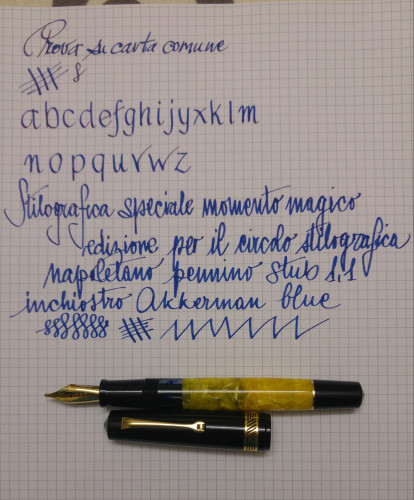 Prova su carta comune
8
abcdefghijyxklm
nopqurwz
Stilografica speciale momento magico
edizione per il circolo stilografica
napoletano pennino stub 1,1
inchiostro Akkerman blue